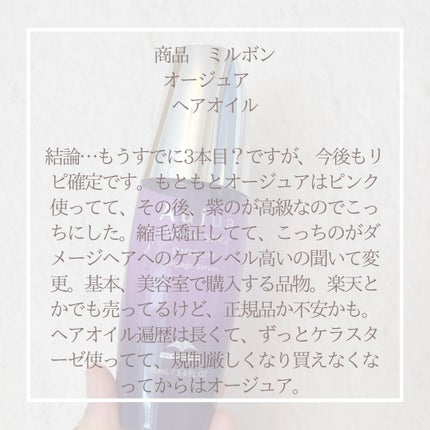 商品　ミルボン
オージュア
ヘアオイル
結論…もうすでに3本目？ですが、今後もリ
ピ確定です。もともとオージュアはピンク
使ってて、その後、紫のが高級なのでこっ
ちにした。縮毛矯正してて、こっちのがダ
メージヘアへのケアレベル高いの聞いて変
更。基本、美容室で購入する品物。楽天と
かでも売ってるけど、正規品か不安かも。
ヘアオイル遍歴は長くて、ずっとケラスタ
ーゼ使ってて、規制厳しくなり買えなくな
ってからはオージュア。
Aujua
3.4 FL.OZ.